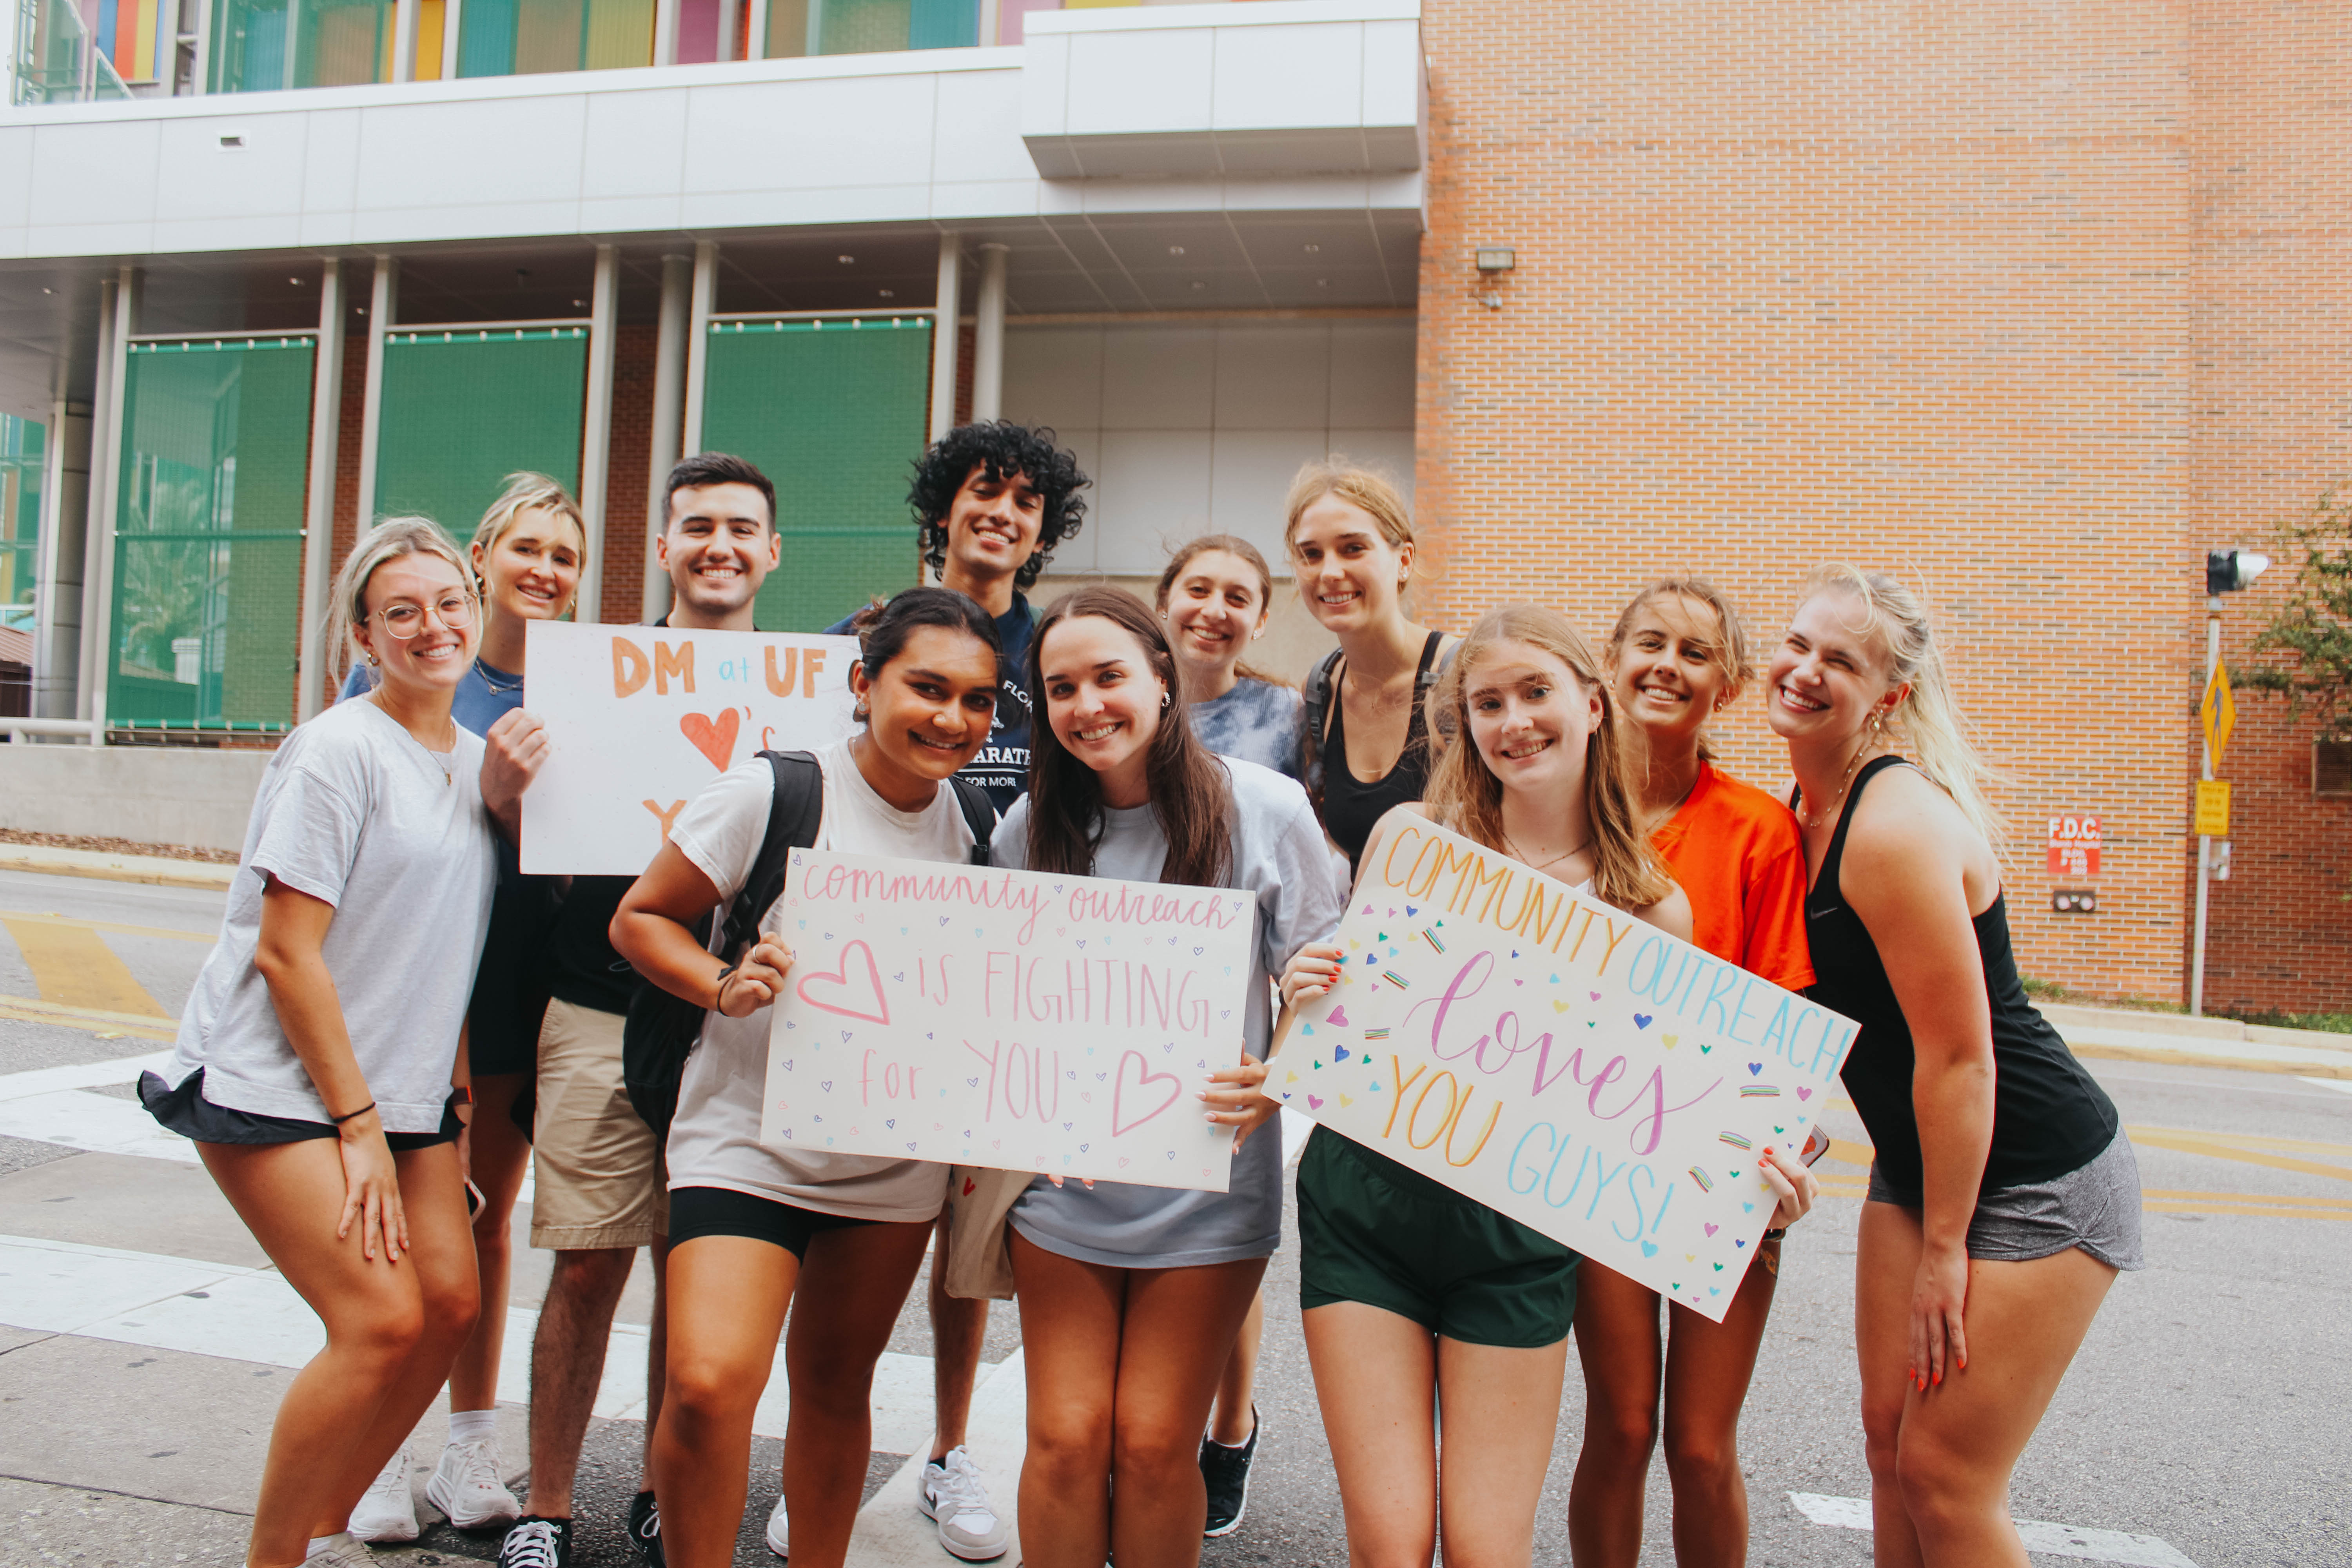 DM at UF
❤'s
community outreach
is FIGHTING
for YOU
COMMUNITY OUTREACH
loves
YOU GUYS!
FOR MORE
F.D.C.